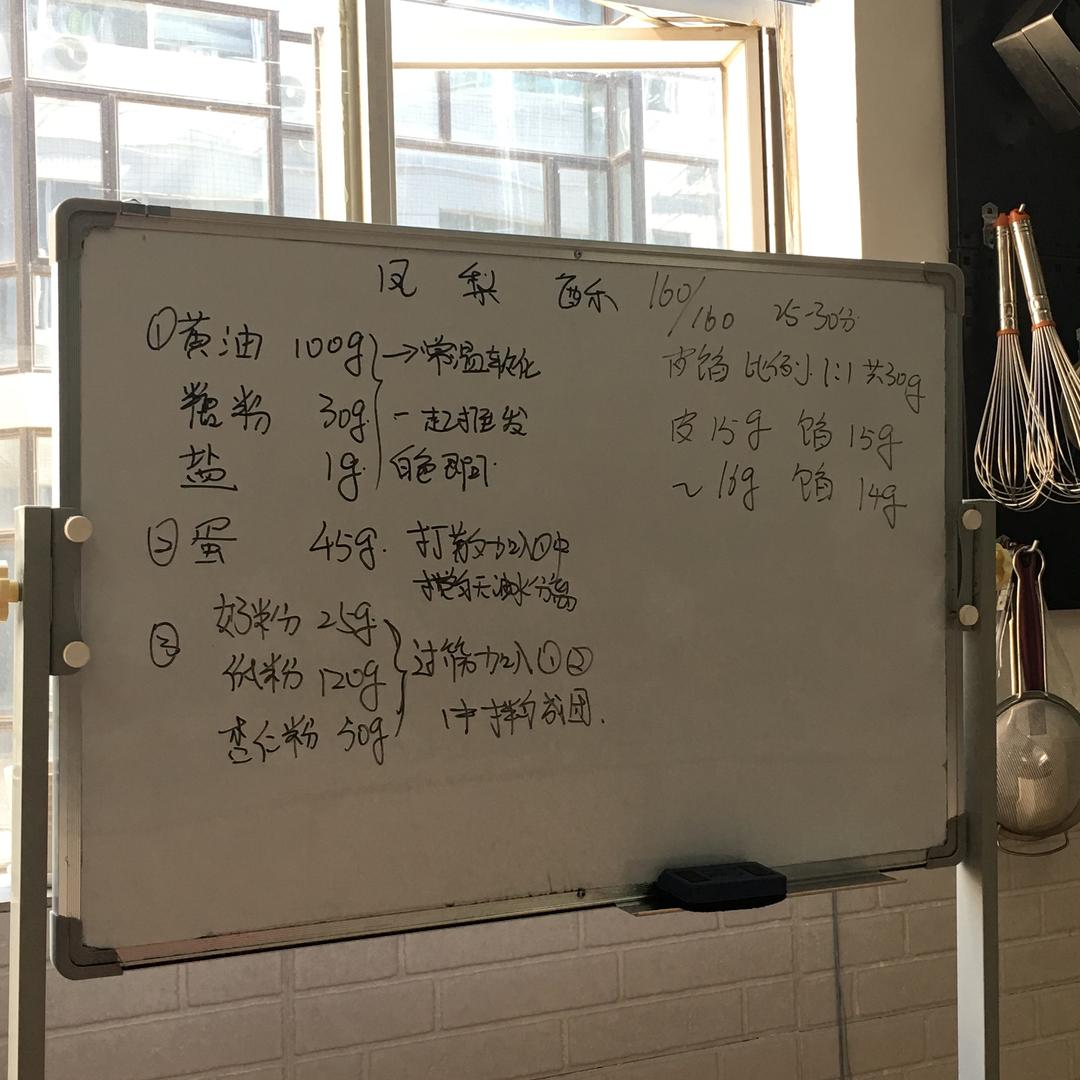 凤梨酥 160/160 25-30分
①黄油 100g →常温软化
糖粉 30g 一起打发
盐 1g 白色即可.
②蛋 45g. 打散加入①中
搅匀无油水分离
③ 奶粉 25g
低粉 120g 过筛加入①②
杏仁粉 50g 中拌匀成团.
皮馅 比例 1:1 共30g
皮 15g 馅 15g
~ 16g 馅 14g